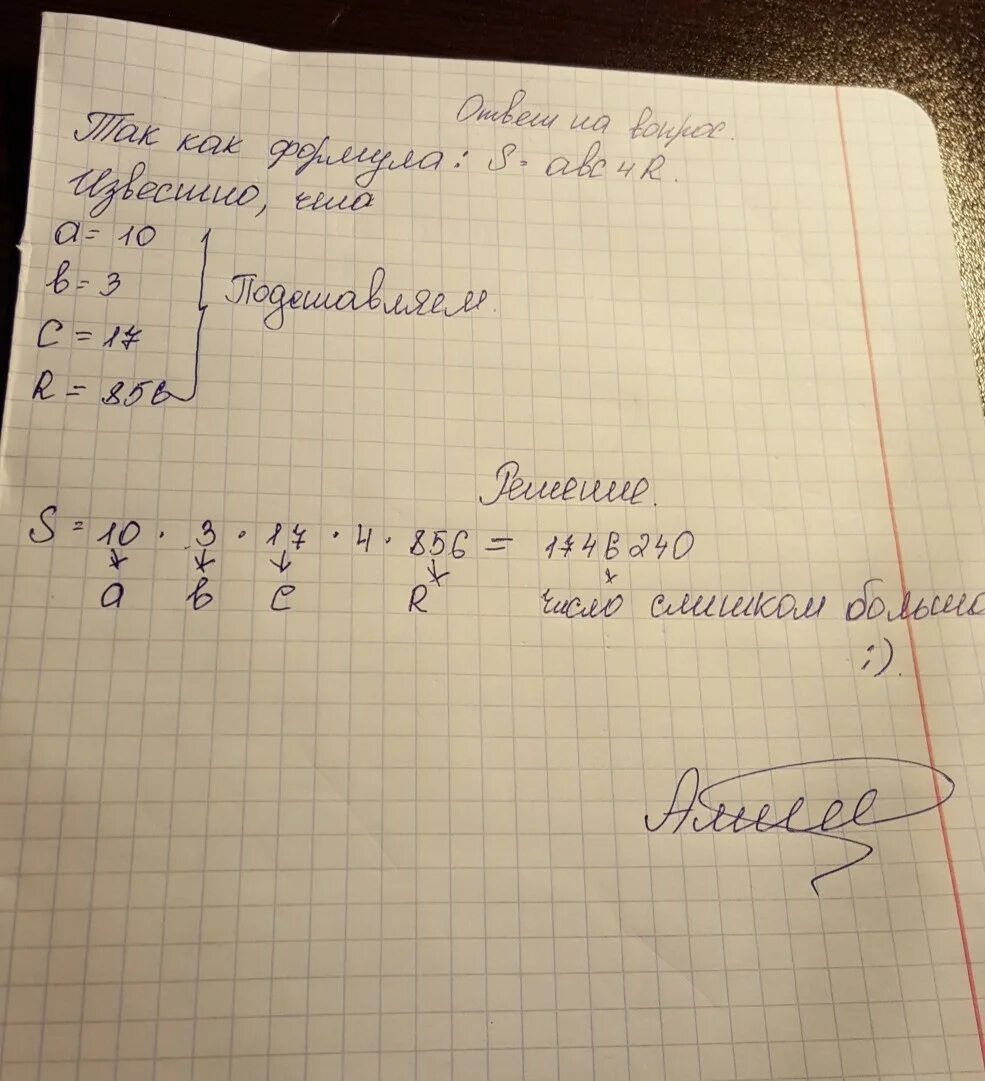 Ответ на вопрос.
Так как формула: S = abc4R.
Известно, что
a = 10
b = 3
Подставляем.
C = 17
R = 856
Решение.
S = 10 · 3 · 17 · 4 · 856 = 1746240
a b c R число слишком большо
;).